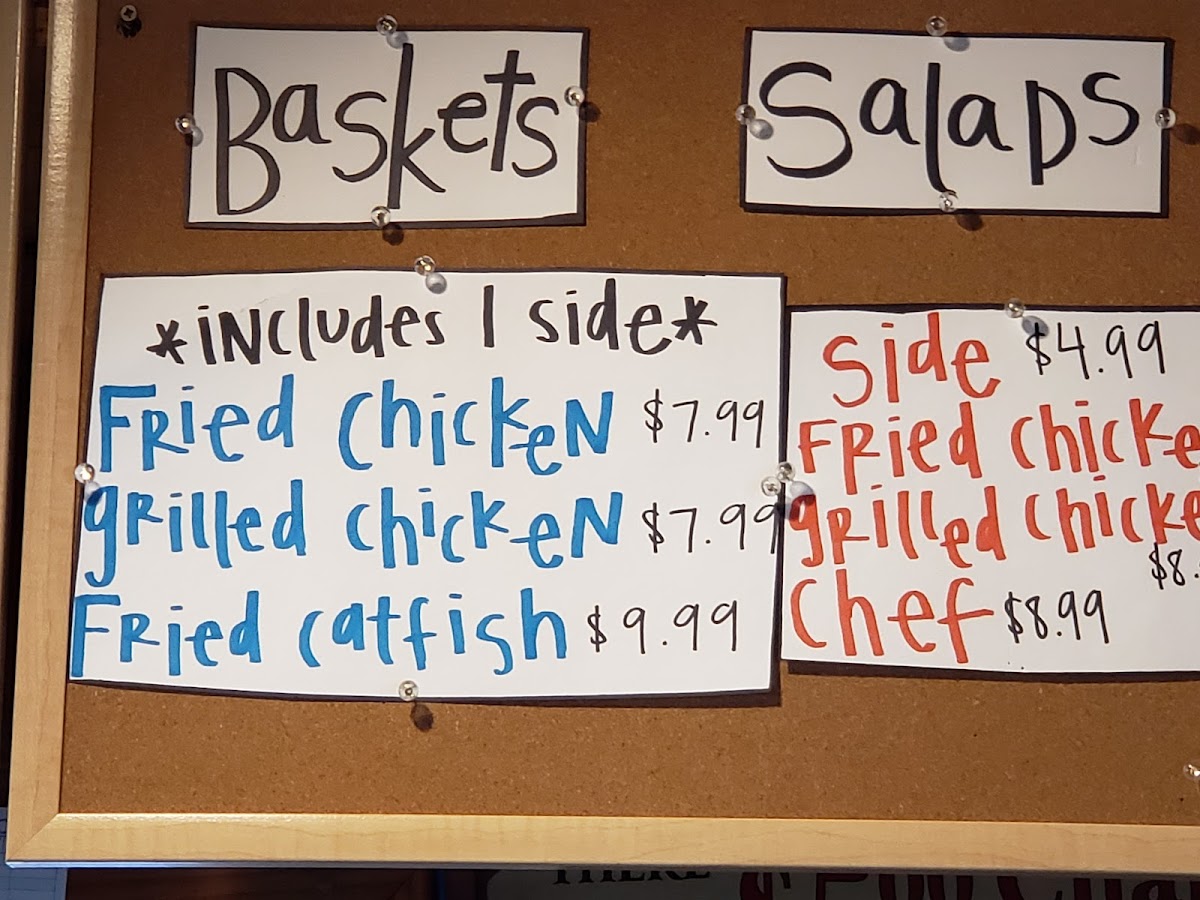 Baskets
*includes 1 side*
Fried chicken $7.99
grilled chicken $7.99
Fried catfish $9.99
Salads
Side $4.99
Fried chicke
grilled chicke
$8.
chef $8.99
THERE